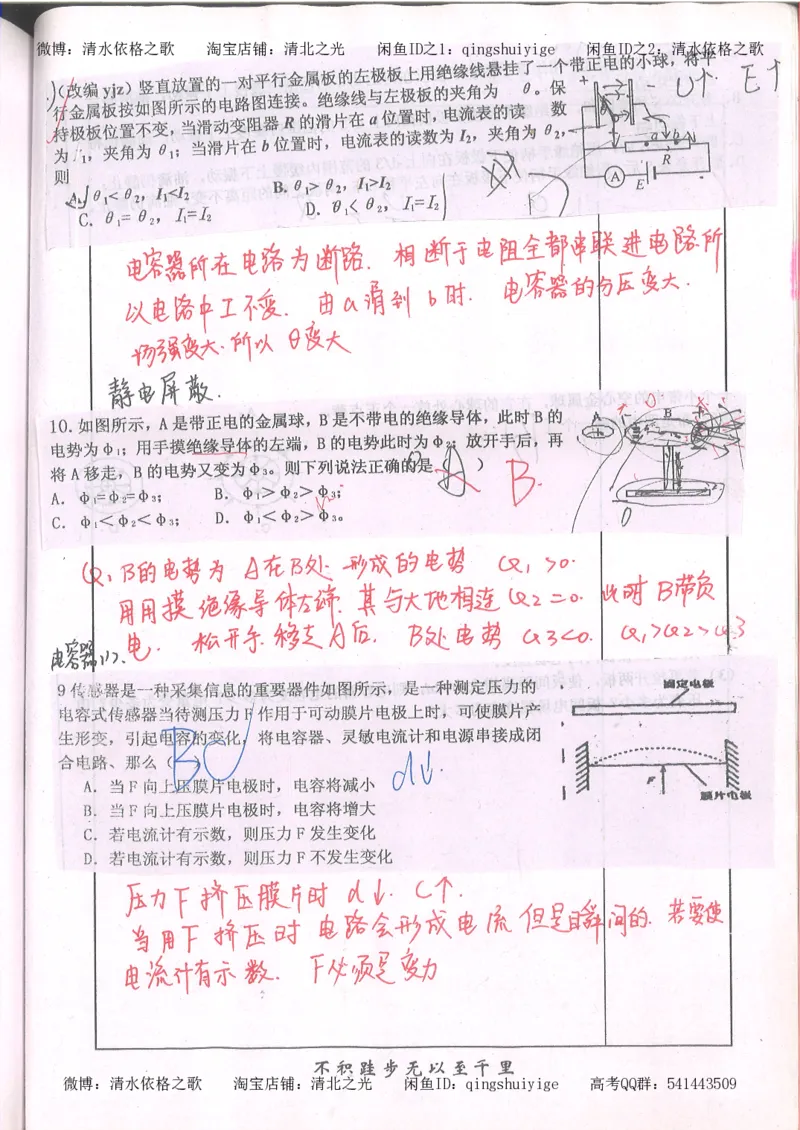 微博：清水依格之歌 淘宝店铺：清北之光 闲鱼ID之1：qingshuiyige 闲鱼ID之2：清水依格之歌
(改编 yjz）竖直放置的一对平行金属板的左极板上用绝缘线悬挂了一个带正电的小球，将平
行金属板按如图所示的电路图连接。绝缘线与左极板的夹角为 θ。保
持极板位置不变，当滑动变阻器 R 的滑片在 a 位置时，电流表的读 数
为 I1，夹角为 θ1；当滑片在 b 位置时，电流表的读数为 I2，夹角为 θ2，
则
A. θ1<θ2，I1<I2 B. θ1>θ2，I1>I2
C. θ1=θ2，I1=I2 D. θ1<θ2，I1=I2
+ −
U↑ E↑
a b
R
A E
电容器所在电路为断路. 相断于电阻全都串联进电路.所
以电路中I不变. 由a滑到b时. 电容器的分压变大.
场强变大.所以 θ变大
静电屏蔽.
10. 如图所示，A 是带正电的金属球，B 是不带电的绝缘导体，此时 B 的
电势为 Φ1；用手摸绝缘导体的左端，B 的电势此时为 Φ2；放开手后，再
将 A 移走，B 的电势又变为 Φ3。则下列说法正确的是（ A ）
B.
A. Φ1=Φ2=Φ3； B. Φ1＞Φ2＞Φ3；
C. Φ1＜Φ2＜Φ3； D. Φ1＜Φ2＞Φ3。
A B
0
φ1 B的电势为 A在B处 形成的电势 φ1>0.
用用摸绝缘导体左端. 其与大地相连 φ2=0. 此时 B带负
电. 松开手.移走A后. B处电势 φ3<0. φ1>φ2>φ3
电容器(1).
9 传感器是一种采集信息的重要器件如图所示，是一种测定压力的
电容式传感器当待测压力 F 作用于可动膜片电极上时，可使膜片产
生形变，引起电容的变化，将电容器、灵敏电流计和电源串接成闭
合电路、那么（ ）
BC
A. 当 F 向上压膜片电极时，电容将减小
d↓.
B. 当 F 向上压膜片电极时，电容将增大
C. 若电流计有示数，则压力 F 发生变化
D. 若电流计有示数，则压力 F 不发生变化
固定电极
F
膜片电极
压力F挤压膜片时 d↓. C↑.
当用F挤压时 电路会形成电流 但是瞬间的. 若要使
电流计有示数. F必须是变力
不积跬步无以至千里
微博：清水依格之歌 淘宝店铺：清北之光 闲鱼ID：qingshuiyige 高考QQ群：541443509